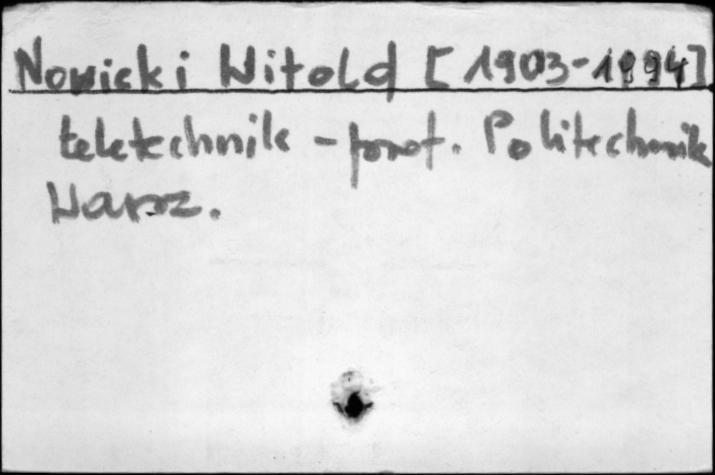 Nowicki Witold [1903-1994]
teletechnik - prof. Politechnik
Warsz.